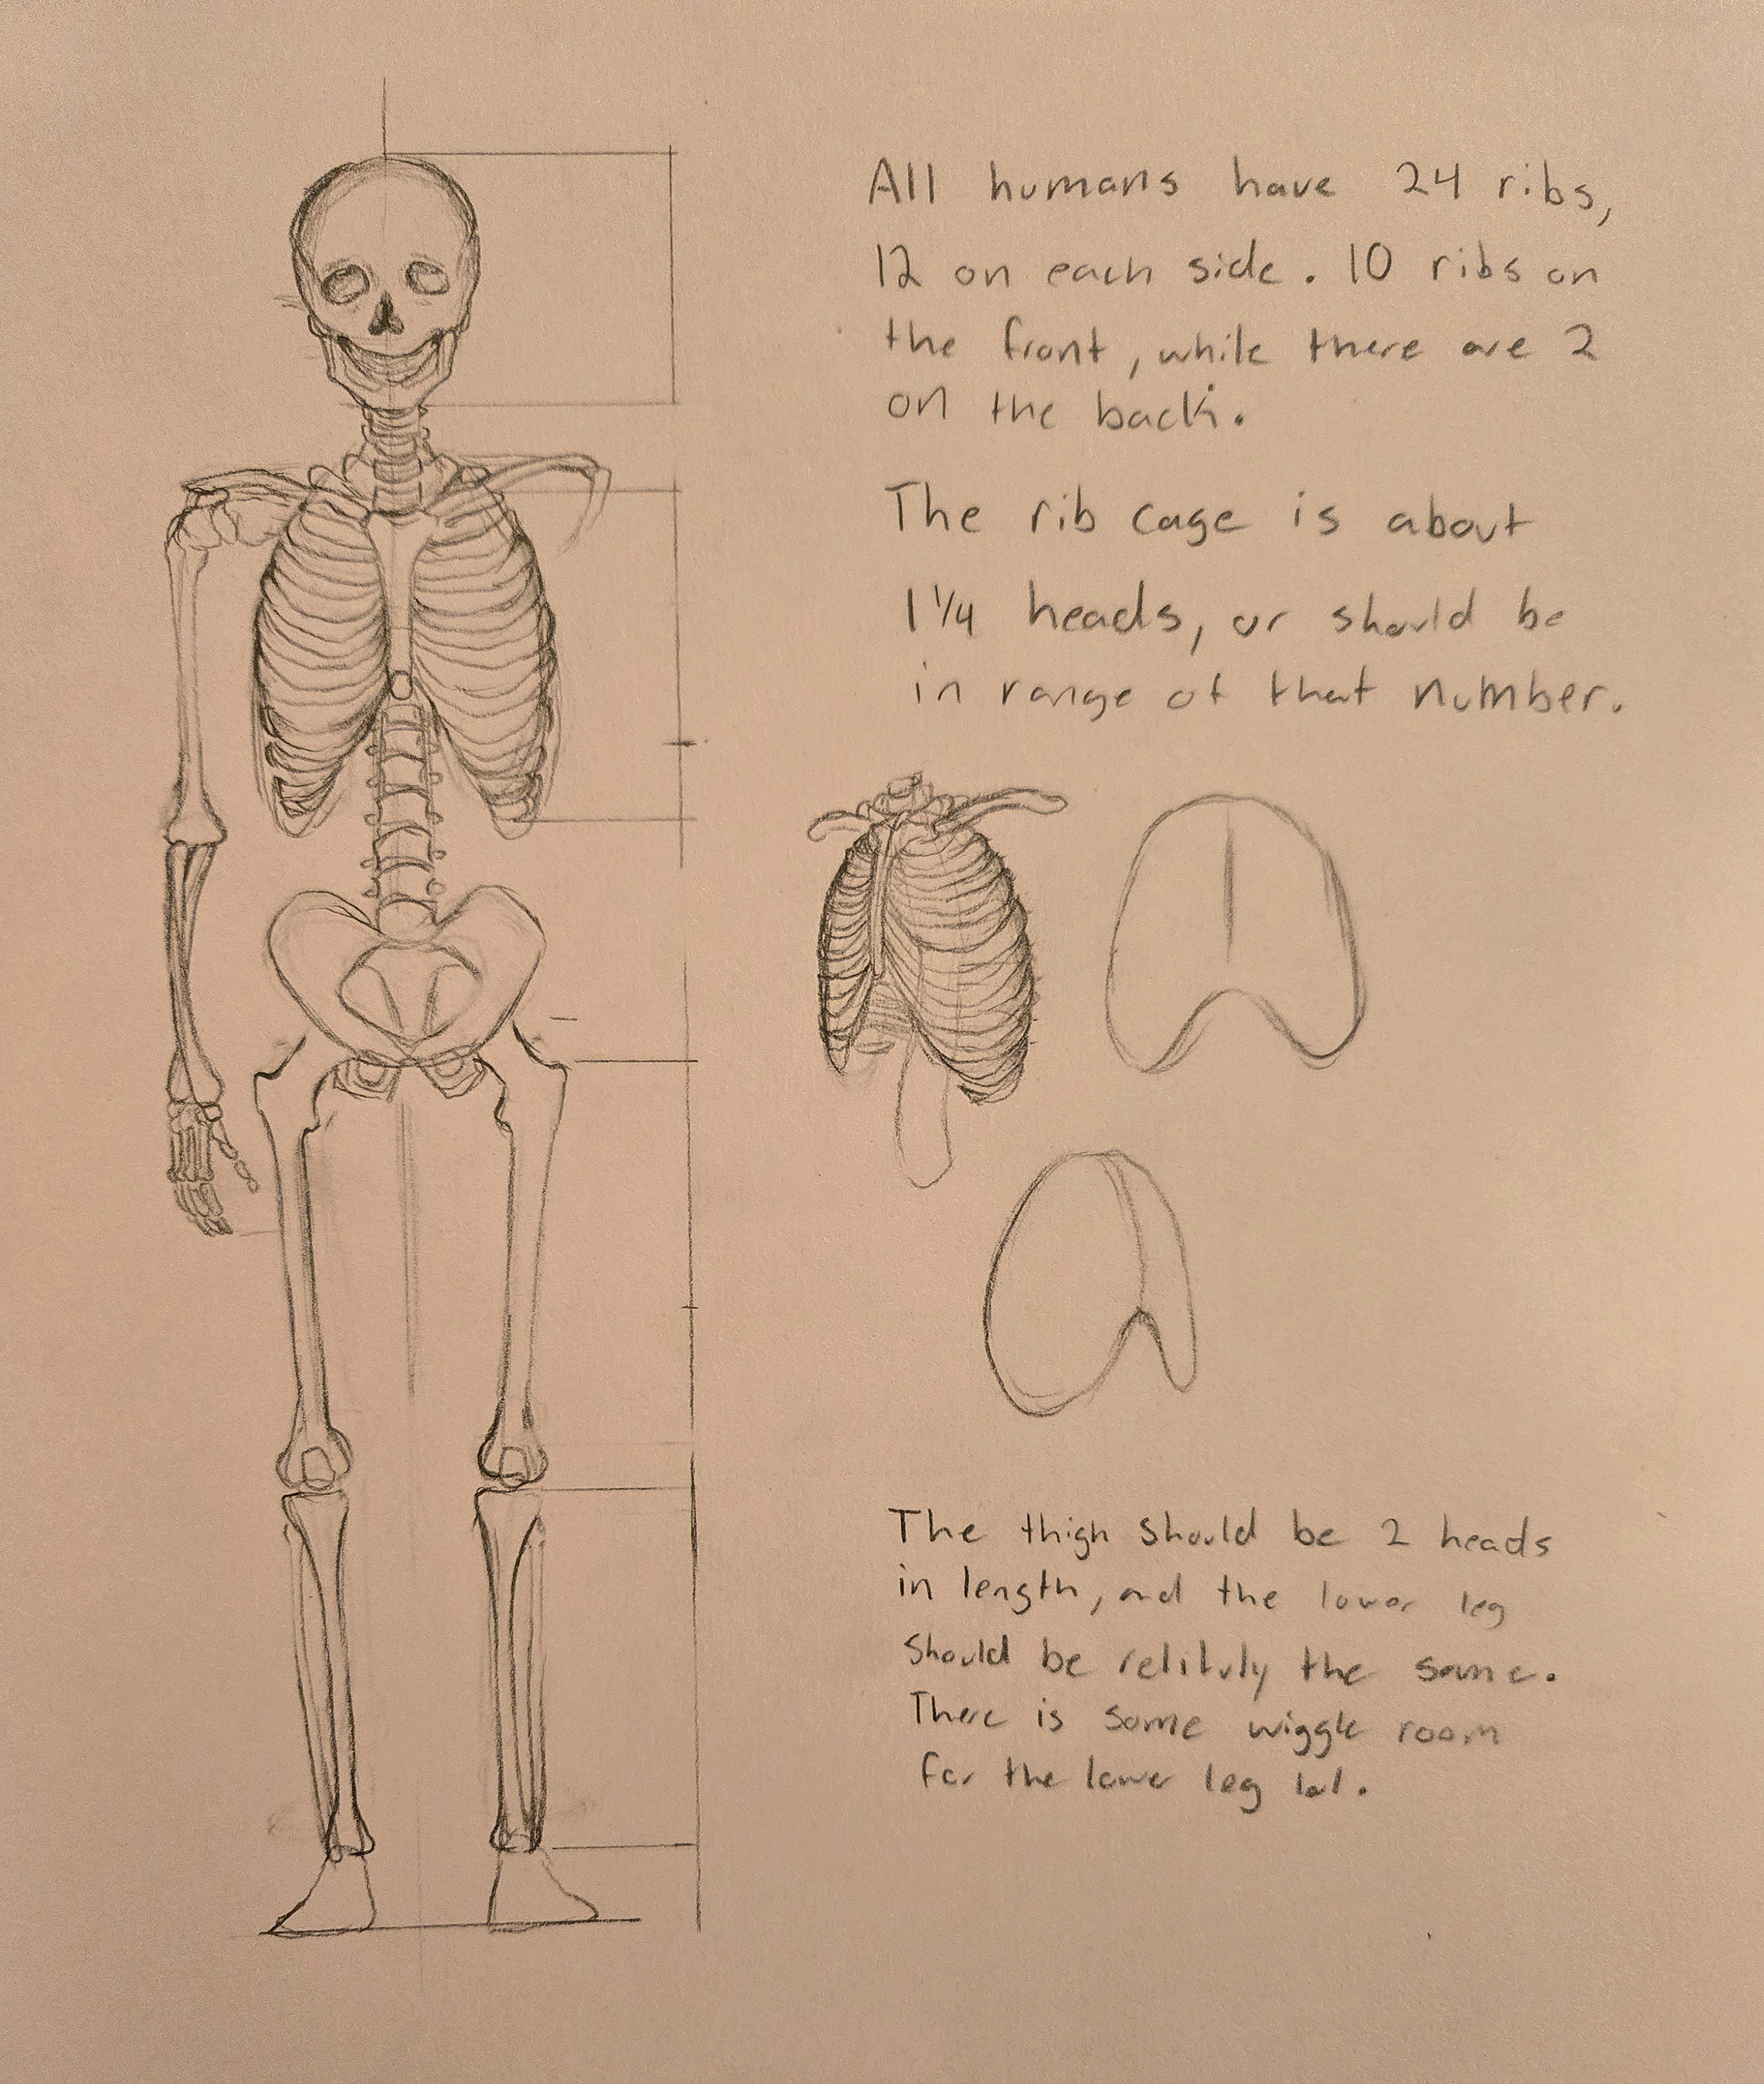 All humans have 24 ribs,
12 on each side. 10 ribs on
the front, while there are 2
on the back.
The rib cage is about
1 1/4 heads, or should be
in range of that number.
The thigh should be 2 heads
in length, and the lower leg
should be relitvly the same.
There is some wiggle room
for the lower leg lol.